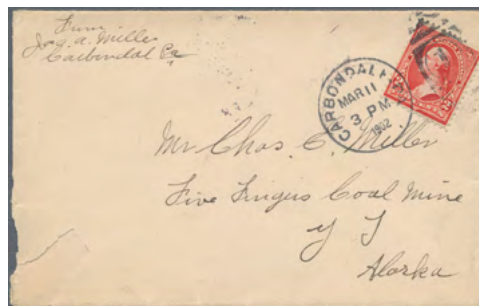 From
Jos. A. Miller
Carbondale Pa
CARBONDALE, PA.
MAR 11
3 PM
1902
Mr Chas. C. Miller
Five Fingers Coal Mine
Y T
Alaska